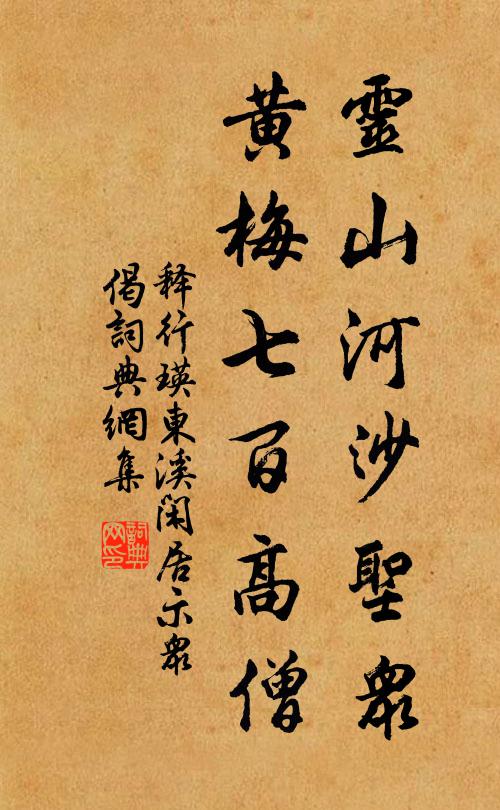 靈山河沙聖衆
黄梅七百高僧
释行瑛東溪閑居示衆
偈詞典網集
詞典網印